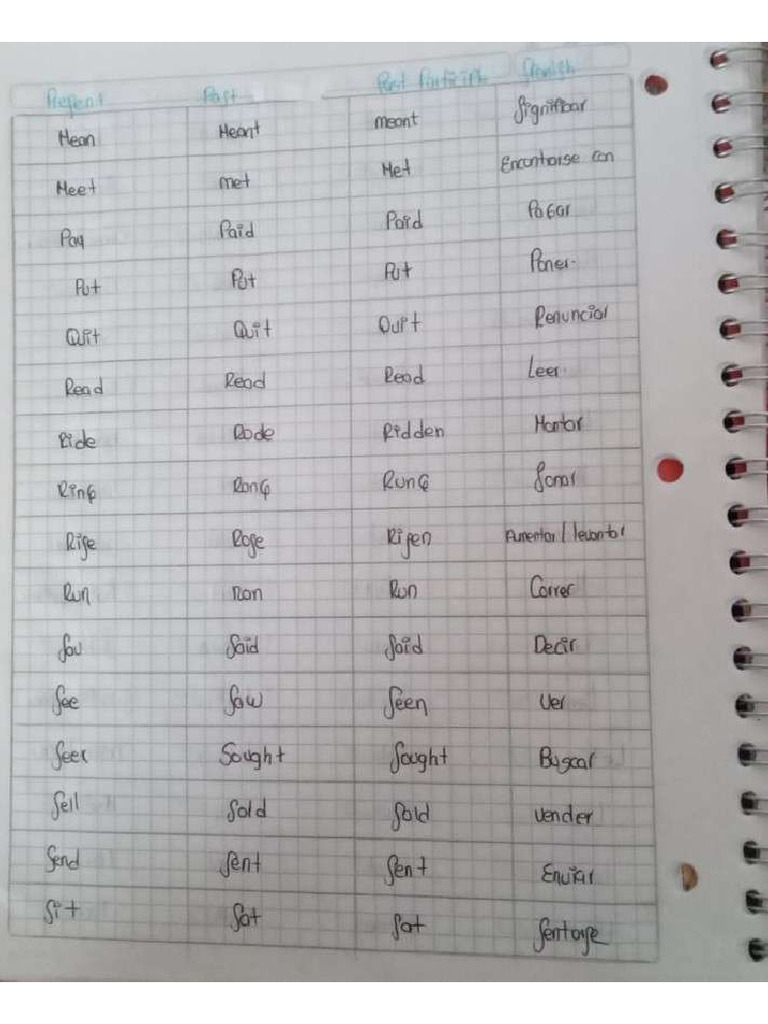 Present Past Past Participle Spanish
Mean Meant meant Significar
Meet met Met Encontrarse con
Pay Paid Paid Pagar
Put Put Put Poner
Quit Quit Quit Renunciar
Read Read Read Leer
Ride Rode Ridden Montar
Ring Rang Rung Sonar
Rise Rose Risen Aumentar / levantar
Run Ran Run Correr
Say Said Said Decir
See Saw Seen Ver
Seek Sought Sought Buscar
Sell Sold Sold vender
Send Sent Sent Enviar
Sit Sat Sat Sentarse